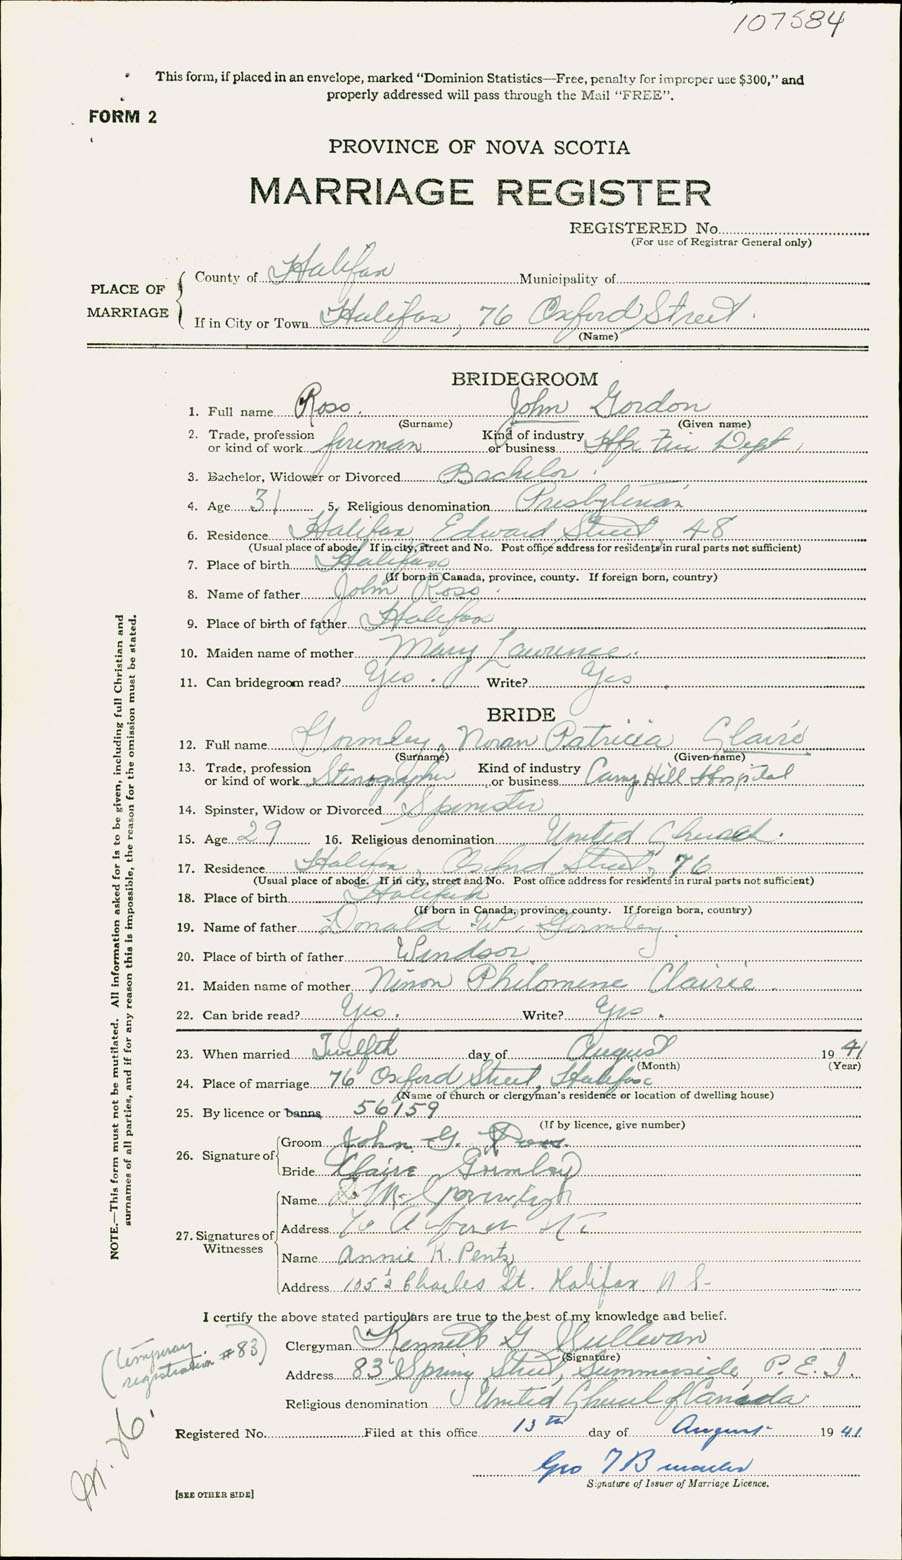 107584
This form, if placed in an envelope, marked “Dominion Statistics—Free, penalty for improper use $300,” and
properly addressed will pass through the Mail “FREE”.
FORM 2
PROVINCE OF NOVA SCOTIA
MARRIAGE REGISTER
REGISTERED No.
(For use of Registrar General only)
PLACE OF MARRIAGE
County of Halifax Municipality of
If in City or Town Halifax, 76 Oxford Street.
(Name)
BRIDEGROOM
1. Full name Ross. John Gordon
(Surname) (Given name)
2. Trade, profession or kind of work fireman Kind of industry or business Hfx Fire Dept.
3. Bachelor, Widower or Divorced Bachelor.
4. Age 31 5. Religious denomination Presbyterian
6. Residence Halifax, Edward Street, 48
(Usual place of abode. If in city, street and No. Post office address for residents in rural parts not sufficient)
7. Place of birth Halifax
(If born in Canada, province, county. If foreign born, country)
8. Name of father John Ross.
9. Place of birth of father Halifax
10. Maiden name of mother Mary Lawrence.
11. Can bridegroom read? Yes. Write? Yes.
BRIDE
12. Full name Gormley, Noran Patricia Claire
(Surname) (Given name)
13. Trade, profession or kind of work Stenographer Kind of industry or business Camp Hill Hospital
14. Spinster, Widow or Divorced Spinster
15. Age 29 16. Religious denomination United Church.
17. Residence Halifax, Oxford Street, 76
(Usual place of abode. If in city, street and No. Post office address for residents in rural parts not sufficient)
18. Place of birth Halifax
(If born in Canada, province, county. If foreign born, country)
19. Name of father Donald W. Gormley.
20. Place of birth of father Windsor
21. Maiden name of mother Ninon Philomene Clairie.
22. Can bride read? Yes. Write? Yes.
23. When married Twelfth day of August 1941
(Month) (Year)
24. Place of marriage 76 Oxford Street, Halifax
(Name of church or clergyman's residence or location of dwelling house)
25. By licence or banns 56159
(If by licence, give number)
26. Signature of Groom John G. Ross.
Bride Claire Gormley
27. Signatures of Witnesses Name
Address 70
Name Annie K. Pentz
Address 105½ Charles St. Halifax N S-
I certify the above stated particulars are true to the best of my knowledge and belief.
Clergyman Kenneth G Sullivan
(Signature)
Address 83 Spring Street, Summerside, P.E.I.
Religious denomination United Church of Canada
Registered No. Filed at this office 13th day of August 1941
Geo T B
Signature of Issuer of Marriage Licence.
[SEE OTHER SIDE]
(temporary registration #83)
M. H.
NOTE.—This form must not be mutilated. All information asked for is to be given, including full Christian and
surnames of all parties, and if for any reason this is impossible, the reason for the omission must be stated.